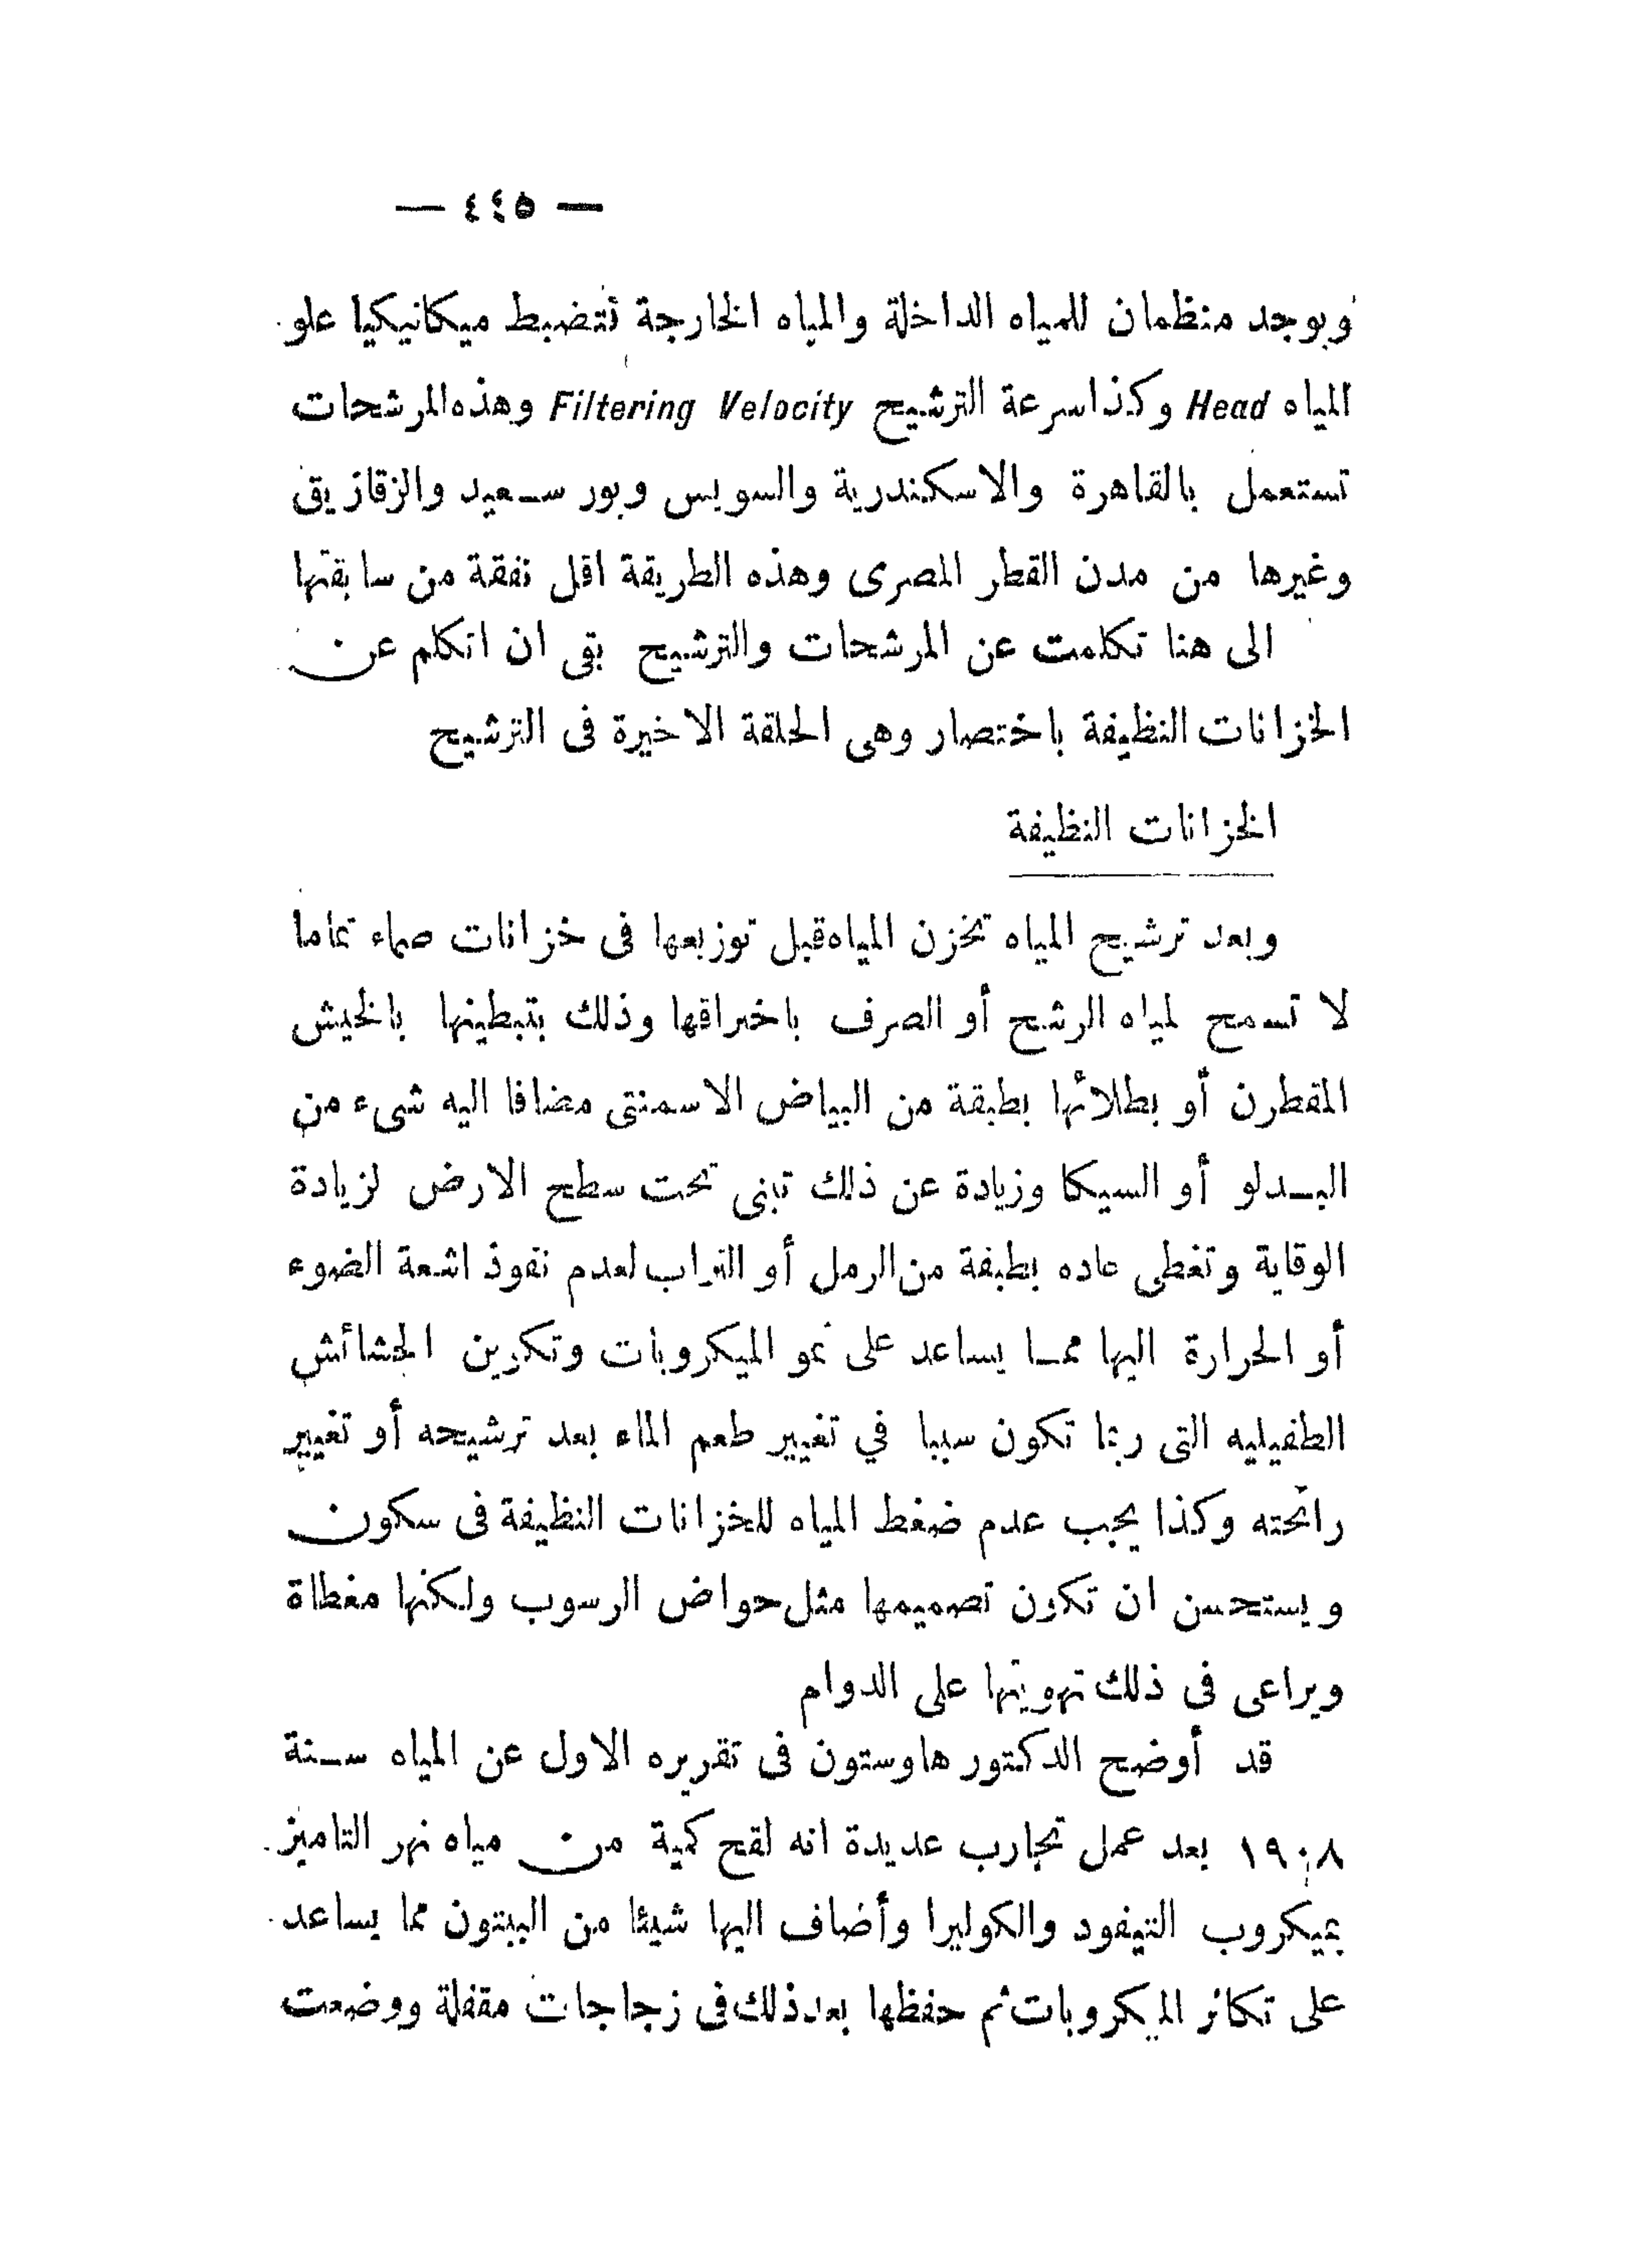 — ٤٤٥ —
ويوجد منظمان للمياه الداخلة والمياه الخارجة تتضبط ميكانيكيا علو
المياه Head وكذا سرعة الترشيح Filtering Velocity وهذه المرشحات
تستعمل بالقاهرة والاسكندرية والسويس وبور سعيد والزقازيق
وغيرها من مدن القطر المصرى وهذه الطريقة اقل نفقة من سابقتها
الى هنا تكلمت عن المرشحات والترشيح بقى ان اتكلم عن
الخزانات النظيفة باختصار وهى الحلقة الاخيرة فى الترشيح
الخزانات النظيفة
وبعد ترشيح المياه تخزن المياه قبل توزيعها فى خزانات صماء تماما
لا تسمح لمياه الرشح أو الصرف باختراقها وذلك بتبطينها بالخيش
المقطرن أو بطلائها بطبقة من البياض الاسمنتى مضافا اليه شىء من
البـدلو أو السيكا وزيادة عن ذلك تبنى تحت سطح الارض لزيادة
الوقاية وتغطى عاده بطبقة من الرمل أو التراب لعدم نفوذ اشعة الضوء
أو الحرارة اليها ممـا يساعد على نمو الميكروبات وتكوين الحشائش
الطفيليه التى ربما تكون سببا في تغيير طعم الماء بعد ترشيحه أو تغيير
رائحته وكذا يجب عدم ضغط المياه للخزانات النظيفة فى سكون
ويستحسن ان تكون تصميمها مثل حواض الرسوب ولكنها مغطاة
ويراعى فى ذلك تهويتها على الدوام
قد أوضح الدكتور هاوستون فى تقريره الاول عن المياه سـنة
١٩٠٨ بعد عمل تجارب عديدة انه لقح كمية من مياه نهر التاميز
بميكروب التيفود والكوليرا وأضاف اليها شيئا من الببتون مما يساعد
على تكاثر الميكروبات ثم حفظها بعد ذلك فى زجاجات مقفلة ووضعت